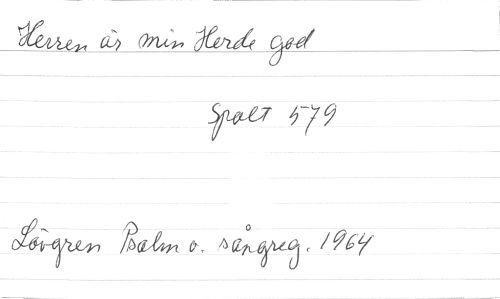 Herren är min Herde god
Spalt 579
Lövgren Psalm o. sångreg. 1964